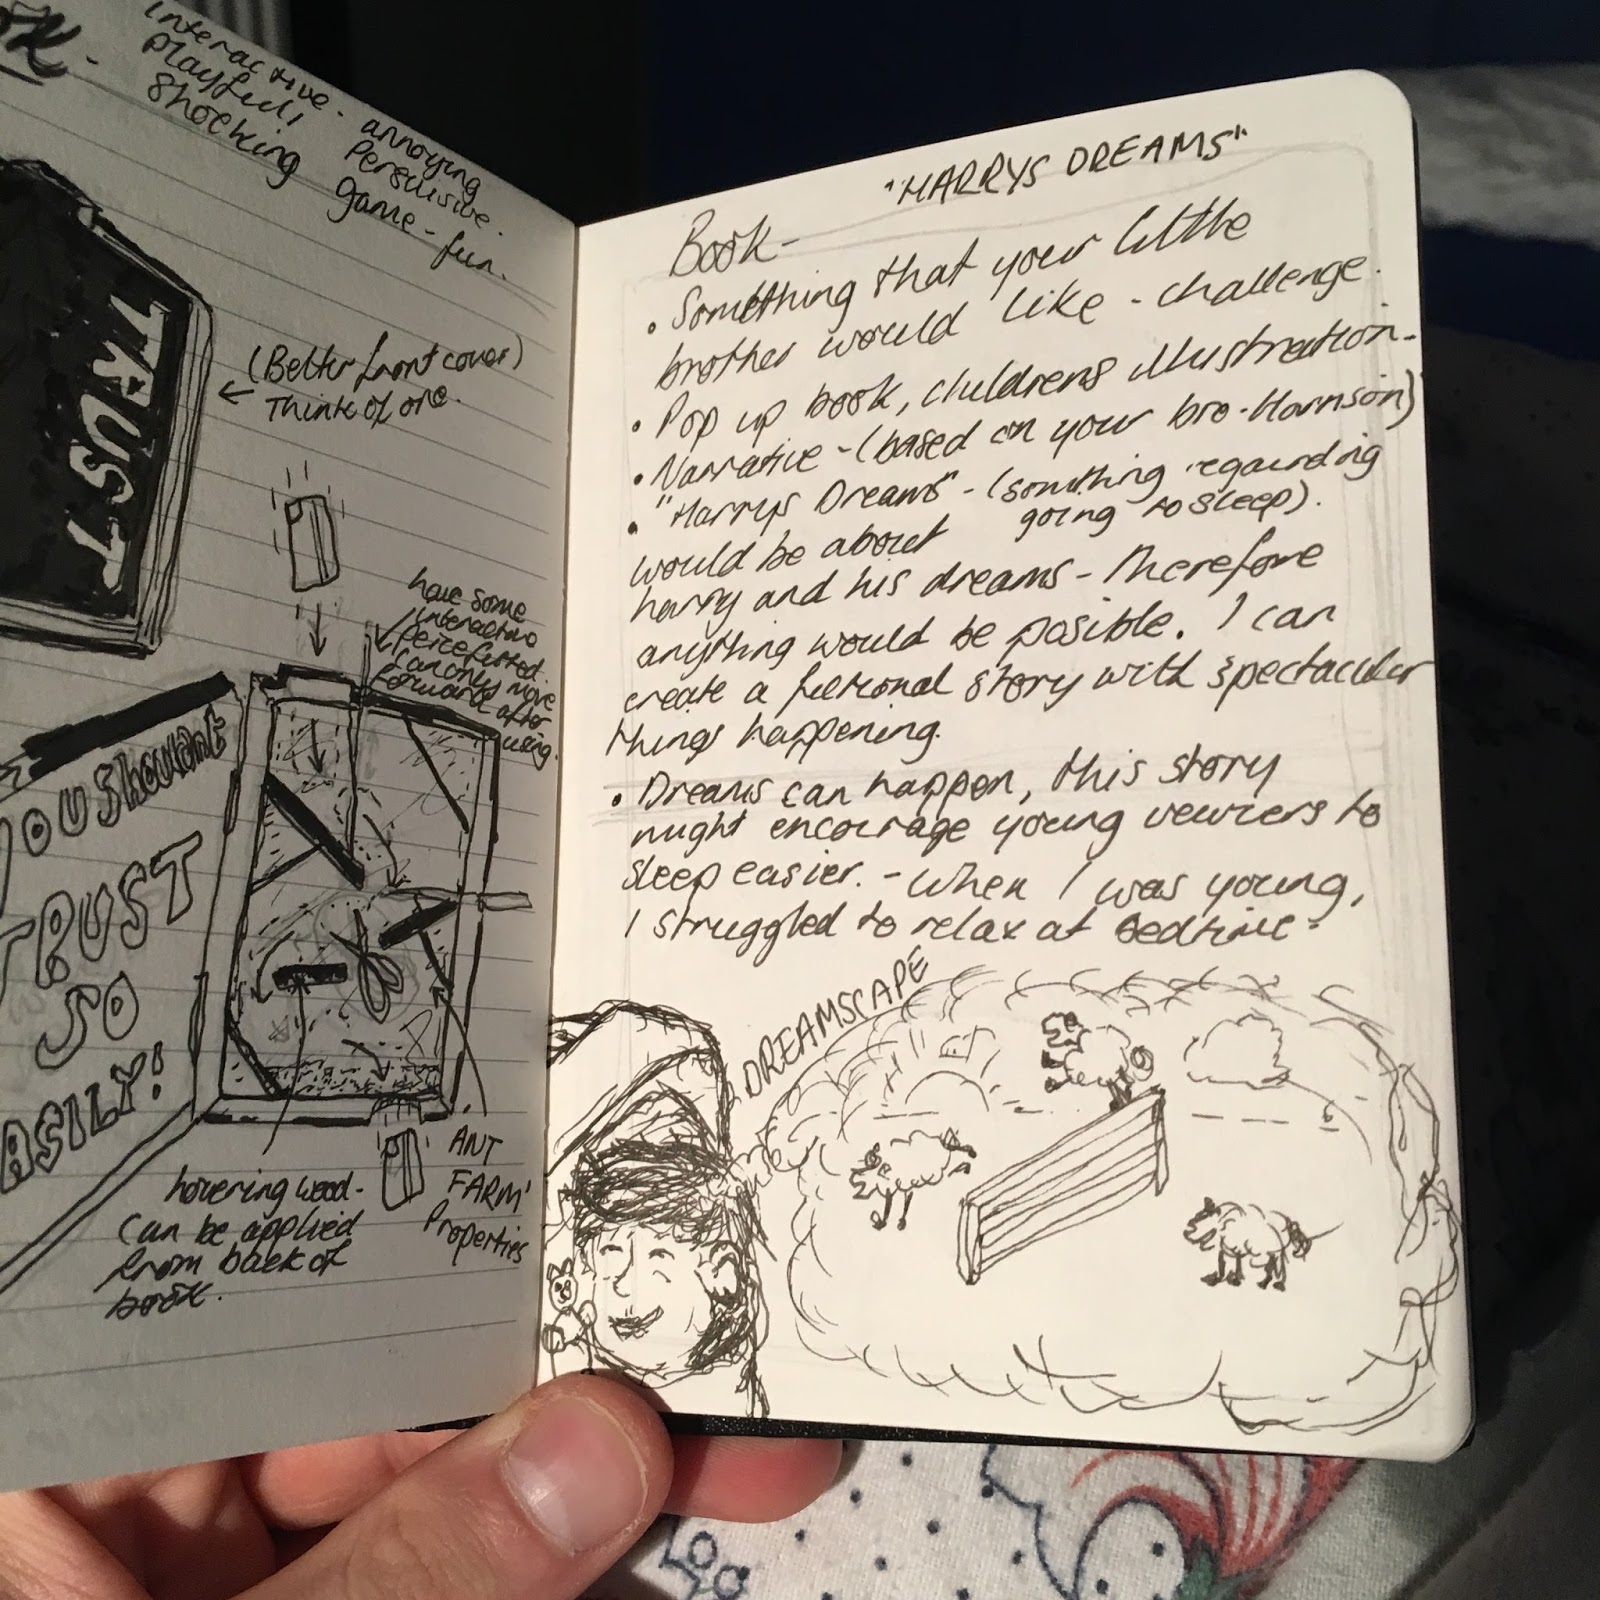 interactive - annoying
playful, persusive.
shocking game - fun.
TRUST
(Better front cover)
Think of one.
have some
interactive
can only move
forwards after
using.
YOU Shouldnt
TRUST
SO
EASILY!
hovering wood -
can be applied
from back of
book.
'ANT
FARM'
Properties
"HARRYS DREAMS"
Book -
• Something that your little
brother would like - challenge.
• Pop up book, childrens illustration.
• Narrative - (based on your bro - Harrison)
• "Harrys Dreams" - (something regarding
going to sleep).
would be about
harry and his dreams - Therefore
anything would be posible. I can
create a fictional story with spectacular
things happening.
• Dreams can happen, this story
might encourage young veiwers to
sleep easier. - When I was young,
I struggled to relax at bedtime.
DREAMSCAPE